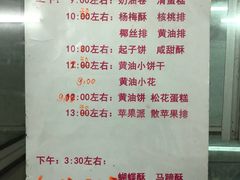 上午: 9:00左右: 奶油卷 清蛋糕
10:00左右: 杨梅酥 核桃排
椰丝排 黄油排
10:80左右: 起子饼 咸甜酥
黄油小饼干
9:00 黄油小花
9:00左右: 黄油饼 松花蛋糕
13:00左右: 苹果派 散苹果排
下午: 3:30左右:
蝴蝶酥 马蹄酥